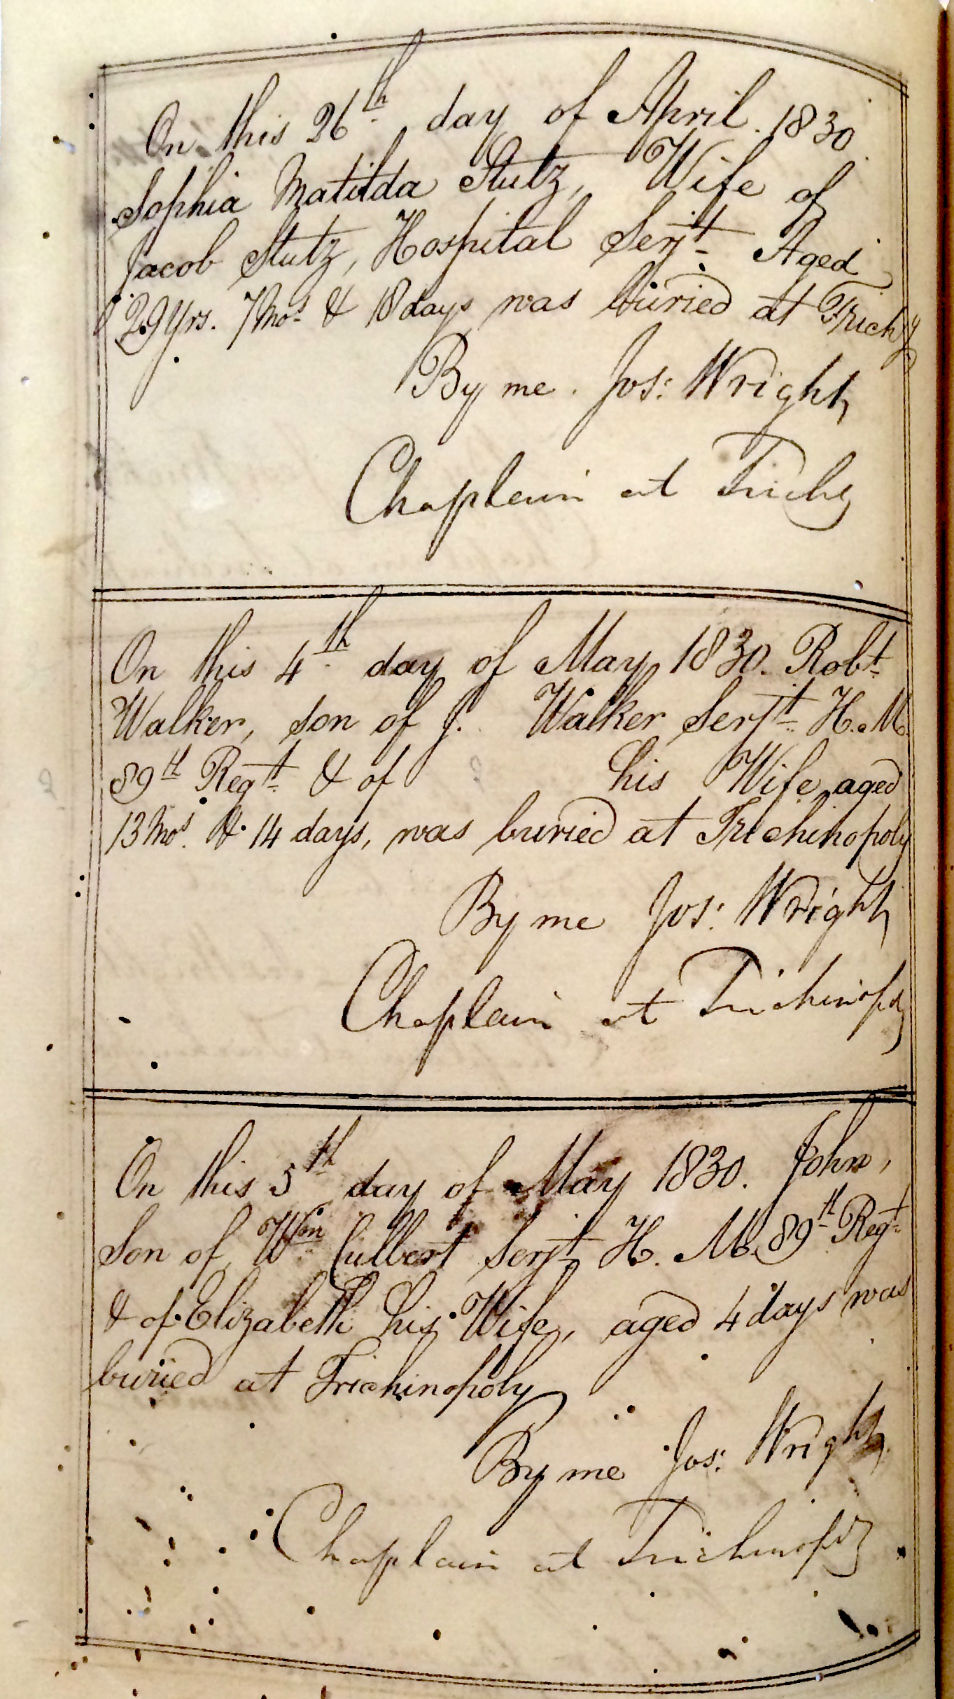 On this 26th day of April 1830
Sophia Matilda Stutz, Wife of
Jacob Stutz, Hospital Serjt. Aged
29 Yrs. 7 Mos. & 18 days, was buried at Trichy
By me. Jos: Wright
Chaplain at Trichy
On this 4th day of May 1830. Robt.
Walker, son of J. Walker Serjt. H. M.
89th Regt. & of his Wife, aged
13 Mos. & 14 days, was buried at Trichinopoly
By me Jos: Wright
Chaplain at Trichinoply
On this 5th day of May 1830. John,
Son of Wm. Culbert Serjt. H. M. 89th Regt.
& of Elizabeth his Wife, aged 4 days was
buried at Trichinopoly
By me Jos: Wright
Chaplain at Trichinoply